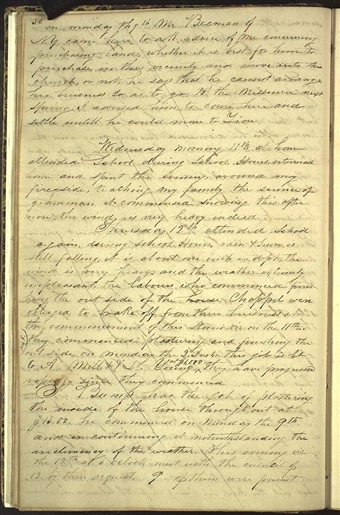 on monday the 9th Mr Beeman of
N.Y. came here to ask advice of me concerning
purchasing lands, whether it is best for him to
purchase in this vicinity and move into this
church or not, he says that he cannot arrange
his business so as to go to the Missouri next
Spring. I advised him to come here and
settle until he could move to Zion
Wednesday morning 11th at home
attended School during school hours returned
home and spent the evening around my
fireside, teaching my family the science of
grammar. It commenced snowing this after
noon, the wind is very heavy indeed
Thursday 12th attended School
again, during school hours rain & snow is
still falling, it is about one inch in depth, the
wind is very heavy and the weather extremely
unpleasant, the labours who commenced finis
hing the out side of the house Chappel were
obliged to brake off from their business at
the commencement of this storm viz on the 11th.
they commenced plastering and finishing the
out side on monday the 2. Inst. this job is let
to A. Millet & L. Young, at $1,000 they have progressed
rapidly since they commenced
J. Bump has the job of plastering
the inside of the house through out at
$1500.00. he commenced on Monday the 9th
and is continueing it notwithstanding the
inclemency of the weather. This evening viz
the 12th at 6 oclock meet with the council of
12. by their request, 9 of them were present